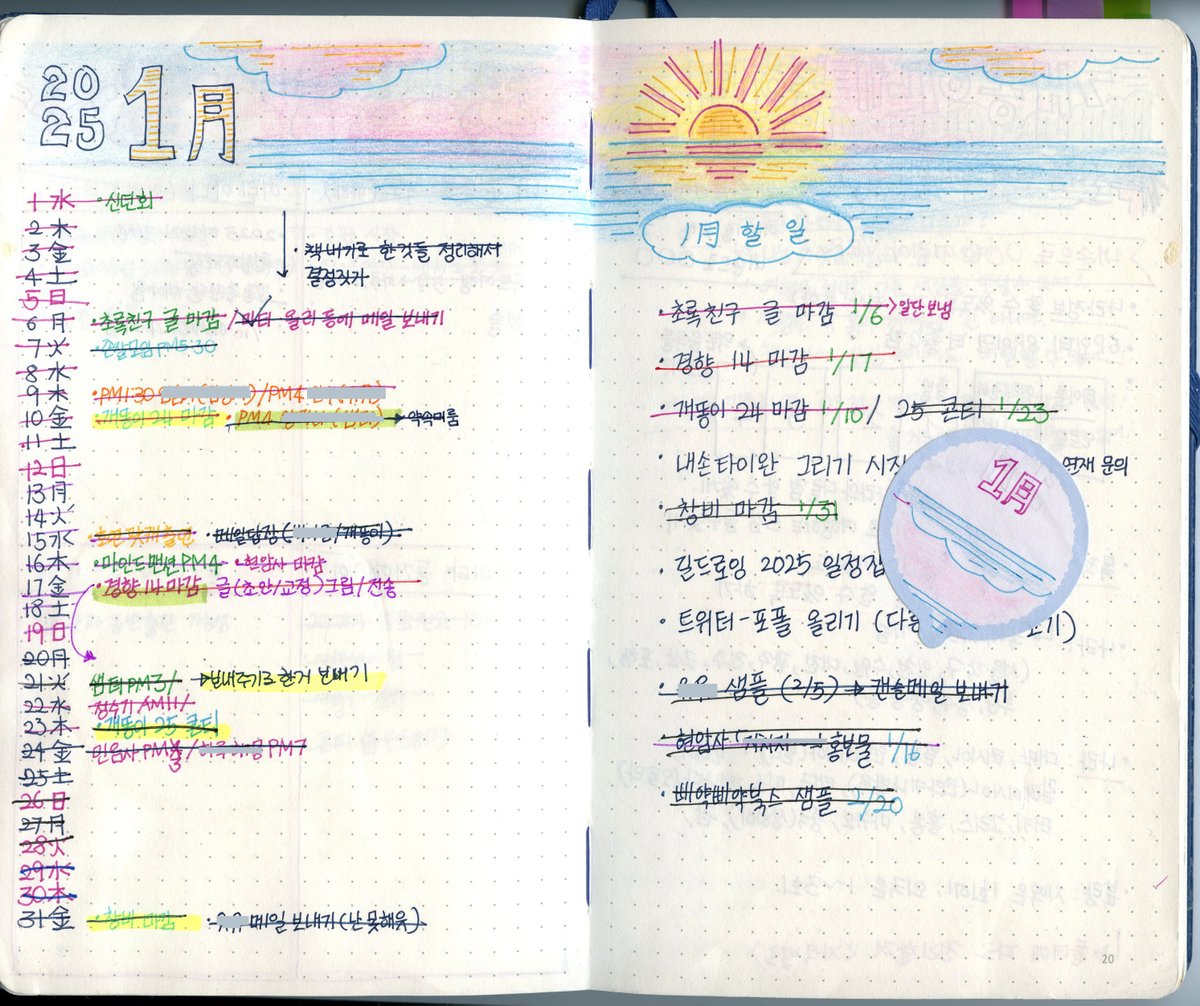 2025 1月
1 水 • 신년회
2 木
3 金 • 책내기로 한것들 정리해서
4 土 결정짓자
5 日
6 月 • 초록친구 글 마감 / 올라 메일 보내기
7 火 PM5:30
8 水
9 木 • PM1:30 / PM4
10 金 • 개똥이 24 마감 • PM4 → 약속미룸
11 土
12 日
13 月
14 火
15 水 • 메일답장( /개똥이)
16 木 • 마인드맨션 PM4 • 현암사 마감
17 金 • 경향 14 마감 글(초안/교정)그림/전송
18 土
19 日
20 月
21 火 샘터 PM3/ →보내주기로 한거 보내기
22 水 정수기 AM11/
23 木 • 개똥이 25 콘티
24 金 민음사 PM 3 / PM7
25 土
26 日
27 月
28 火
29 水
30 木
31 金 • 창비 마감 • 메일 보내기(난 못해욧)
1月 할 일
• 초록친구 글 마감 1/6 >일단보냄
• 경향 14 마감 1/17
• 개똥이 24 마감 1/10 / 25 콘티 1/23
• 내손타이완 그리기 시작 연재 문의
1月
• 창비 마감 1/31
• 길드로잉 2025 일정잡
• 트위터-포플 올리기 (다음
• 샘플 (2/5) → 캔슬메일 보내기
• 현암사 홍보물 1/16
• 빼약빼약북스 샘플 2/20
20